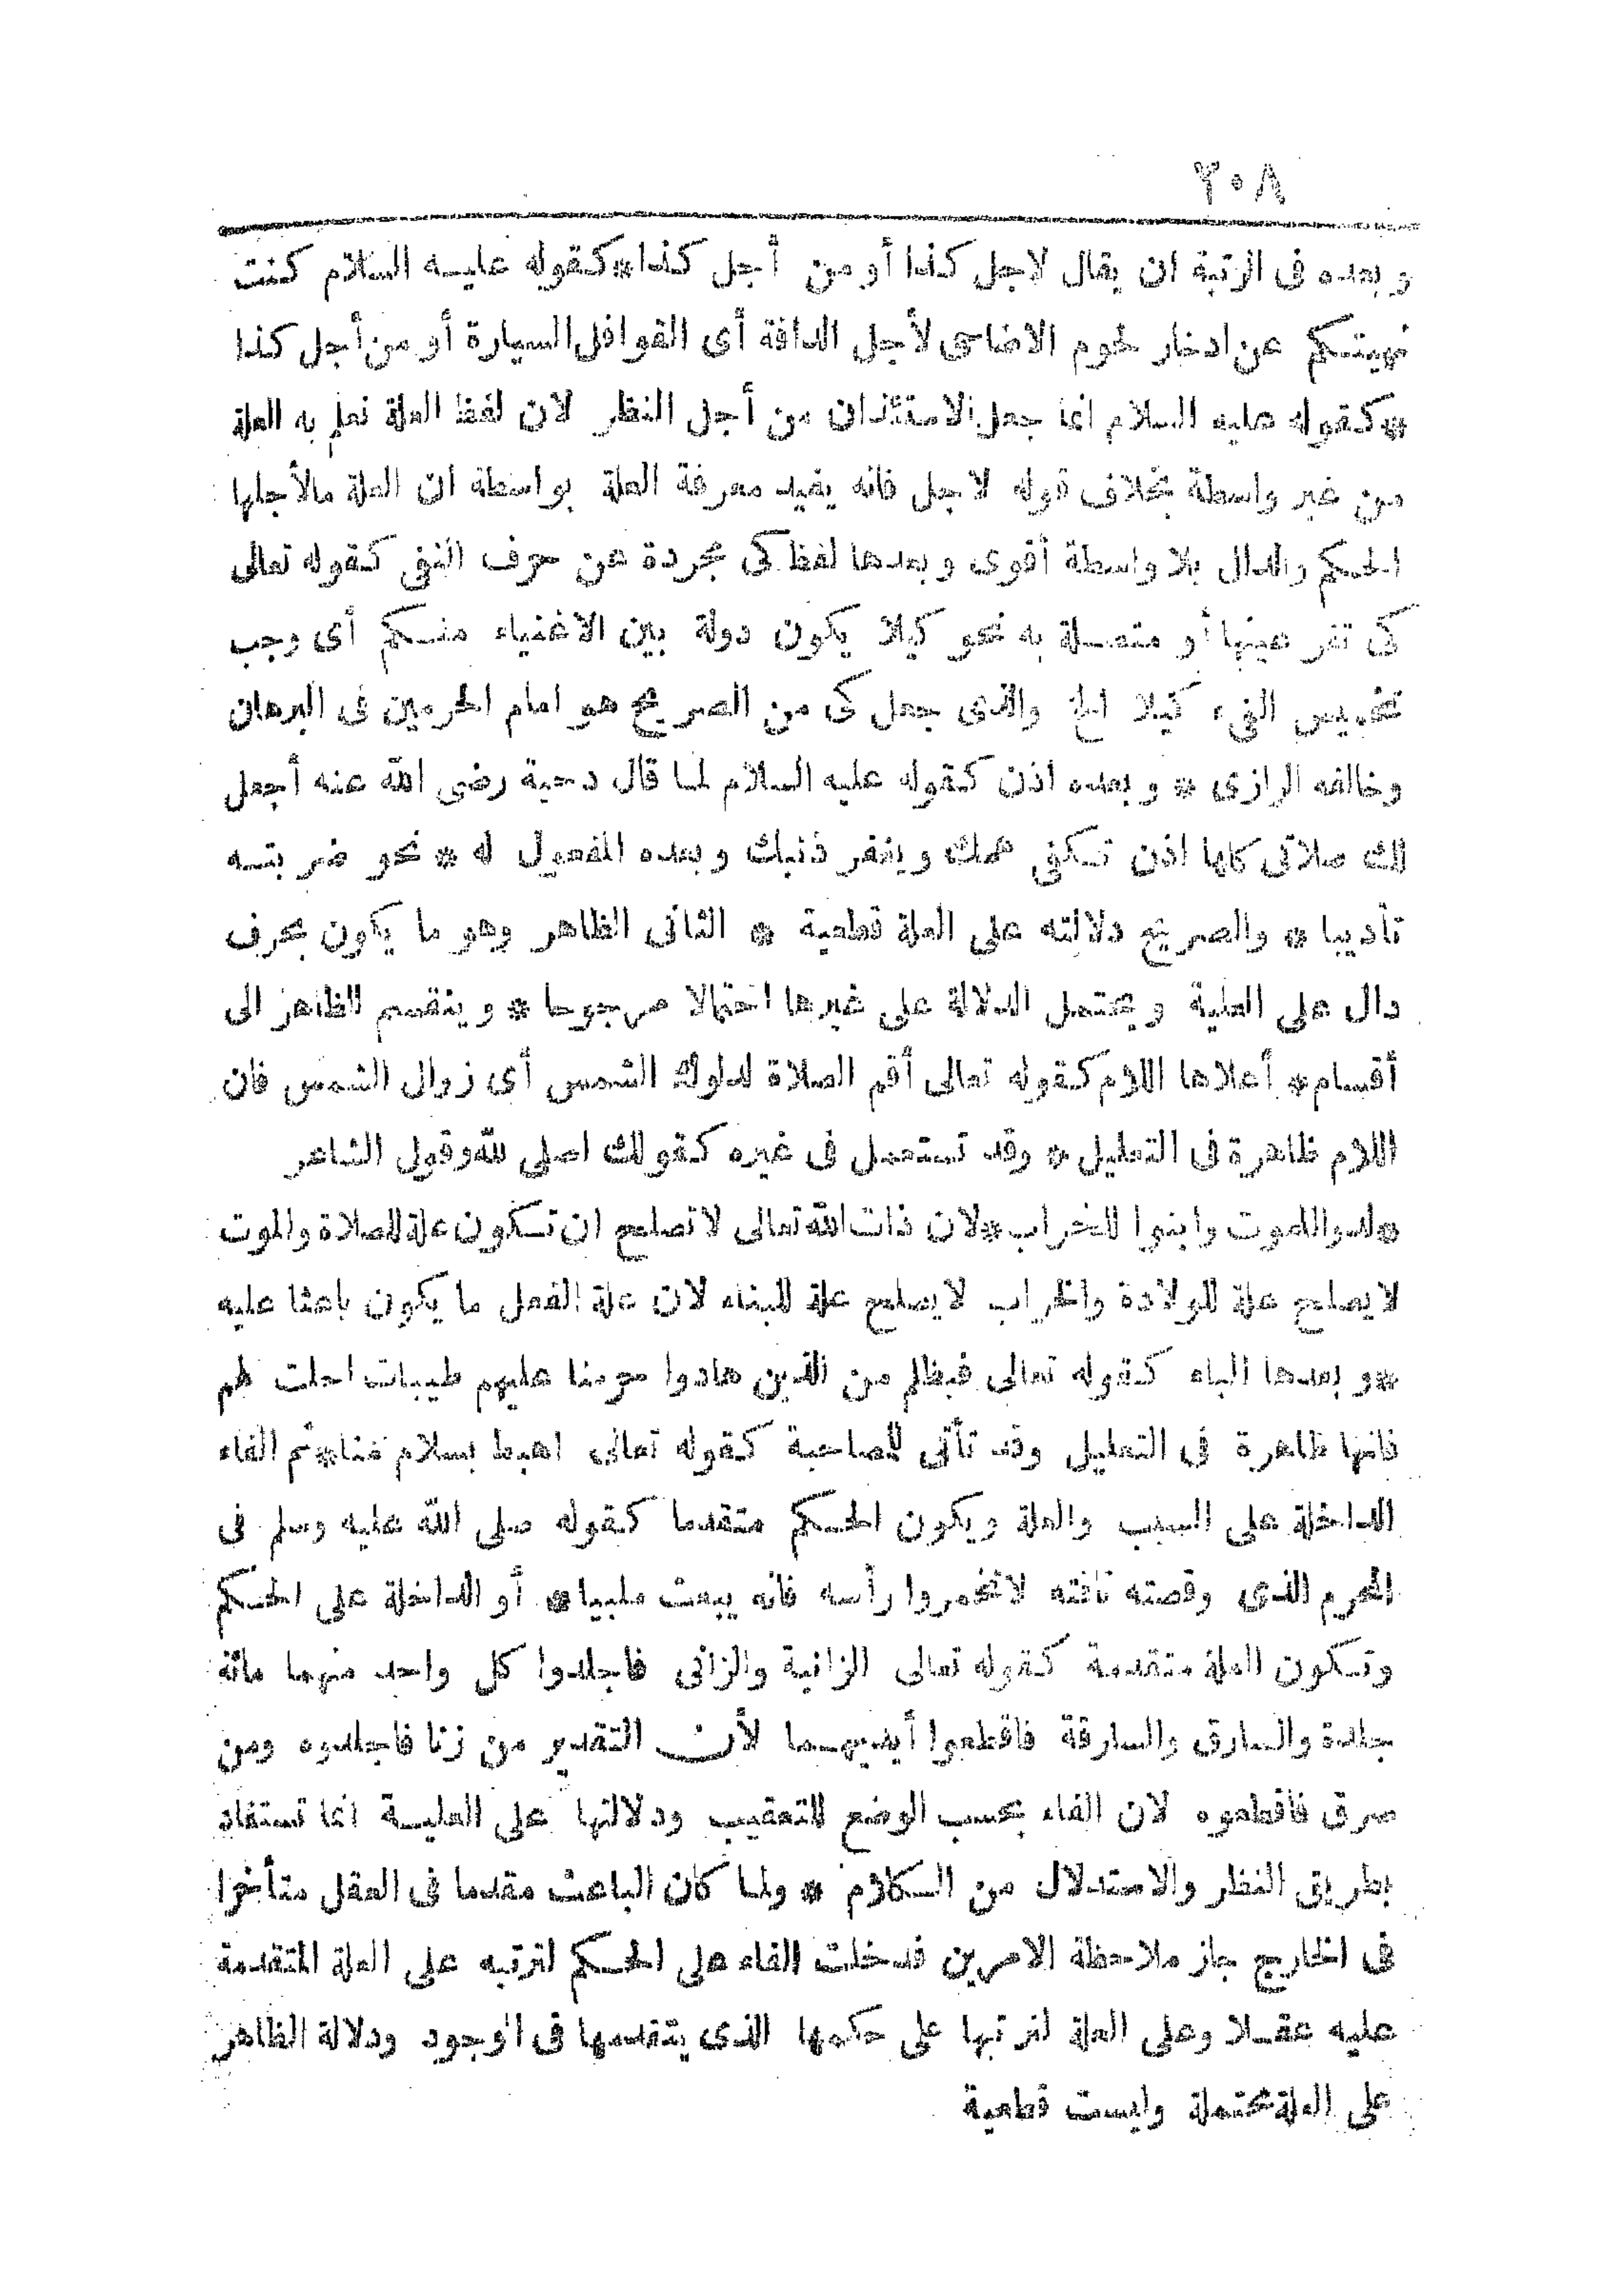 ٢٠٨
و بعده فى الرتبة ان يقال لاجل كذا أو من أجل كذا*كقوله عليه السلام كنت
نهيتكم عن ادخار لحوم الاضاحى لأجل الدافة أى القوافل السيارة أو من أجل كذا
*كقوله عليه السلام انما جعل الاستئذان من أجل النظر لان لفظ العلة نعلم به العلة
من غير واسطة بخلاف قوله لاجل فانه يفيد معرفة العلة بواسطة ان العلة مالأجلها
الحكم والدال بلا واسطة أقوى و بعدها لفظ كى مجردة عن حرف النفى كقوله تعالى
كى تقر عينها أو متصلة به نحو كيلا يكون دولة بين الاغنياء منكم أى وجب
تخميس الفىء كيلا الخ والذى جعل كى من الصريح هو امام الحرمين فى البرهان
وخالفه الرازى * و بعده اذن كقوله عليه السلام لما قال دحية رضى الله عنه أجعل
لك صلاتى كلها اذن تكفى همك و يغفر ذنبك و بعده المفعول له * نحو ضربته
تأديبا * والصريح دلالته على العلة قطعية * الثانى الظاهر وهو ما يكون بحرف
دال على العلية و يحتمل الدلالة على غيرها احتمالا مرجوحا * و ينقسم الظاهر الى
أقسام* أعلاها اللام كقوله تعالى أقم الصلاة لدلوك الشمس أى زوال الشمس فان
اللام ظاهرة فى التعليل * وقد تستعمل فى غيره كقولك اصلى لله وقول الشاعر
*لدوا للموت وابنوا للخراب*لان ذات الله تعالى لا تصلح ان تكون علة للصلاة والموت
لا يصلح علة للولادة والخراب لا يصلح علة للبناء لان علة الفعل ما يكون باعثا عليه
*و بعدها الباء كقوله تعالى فبظلم من الذين هادوا حرمنا عليهم طيبات احلت لهم
فانها ظاهرة فى التعليل وقد تأتى للمصاحبة كقوله تعالى اهبط بسلام منا*ثم الفاء
الداخلة على السبب والعلة و يكون الحكم متقدما كقوله صلى الله عليه وسلم فى
المحرم الذى وقصته ناقته لا تخمروا رأسه فانه يبعث ملبيا* أو الداخلة على الحكم
وتكون العلة متقدمة كقوله تعالى الزانية والزانى فاجلدوا كل واحد منهما مائة
جلدة والسارق والسارقة فاقطعوا أيديهما لأن التقدير من زنا فاجلدوه ومن
سرق فاقطعوه لان الفاء بحسب الوضع للتعقيب ودلالتها على العلية انما تستفاد
بطريق النظر والاستدلال من الكلام * ولما كان الباعث مقدما فى العقل متأخرا
فى الخارج جاز ملاحظة الامرين فدخلت الفاء على الحكم لترتبه على العلة المتقدمة
عليه عقلا وعلى العلة لترتبها على حكمها الذى يتقدمها فى الوجود ودلالة الظاهر
على العلة محتملة وليست قطعية